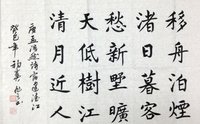 移舟泊煙
渚日暮客
愁新墅曠
天低樹江
清月近人
唐孟浩然詩宿建德江
癸巳年初夏